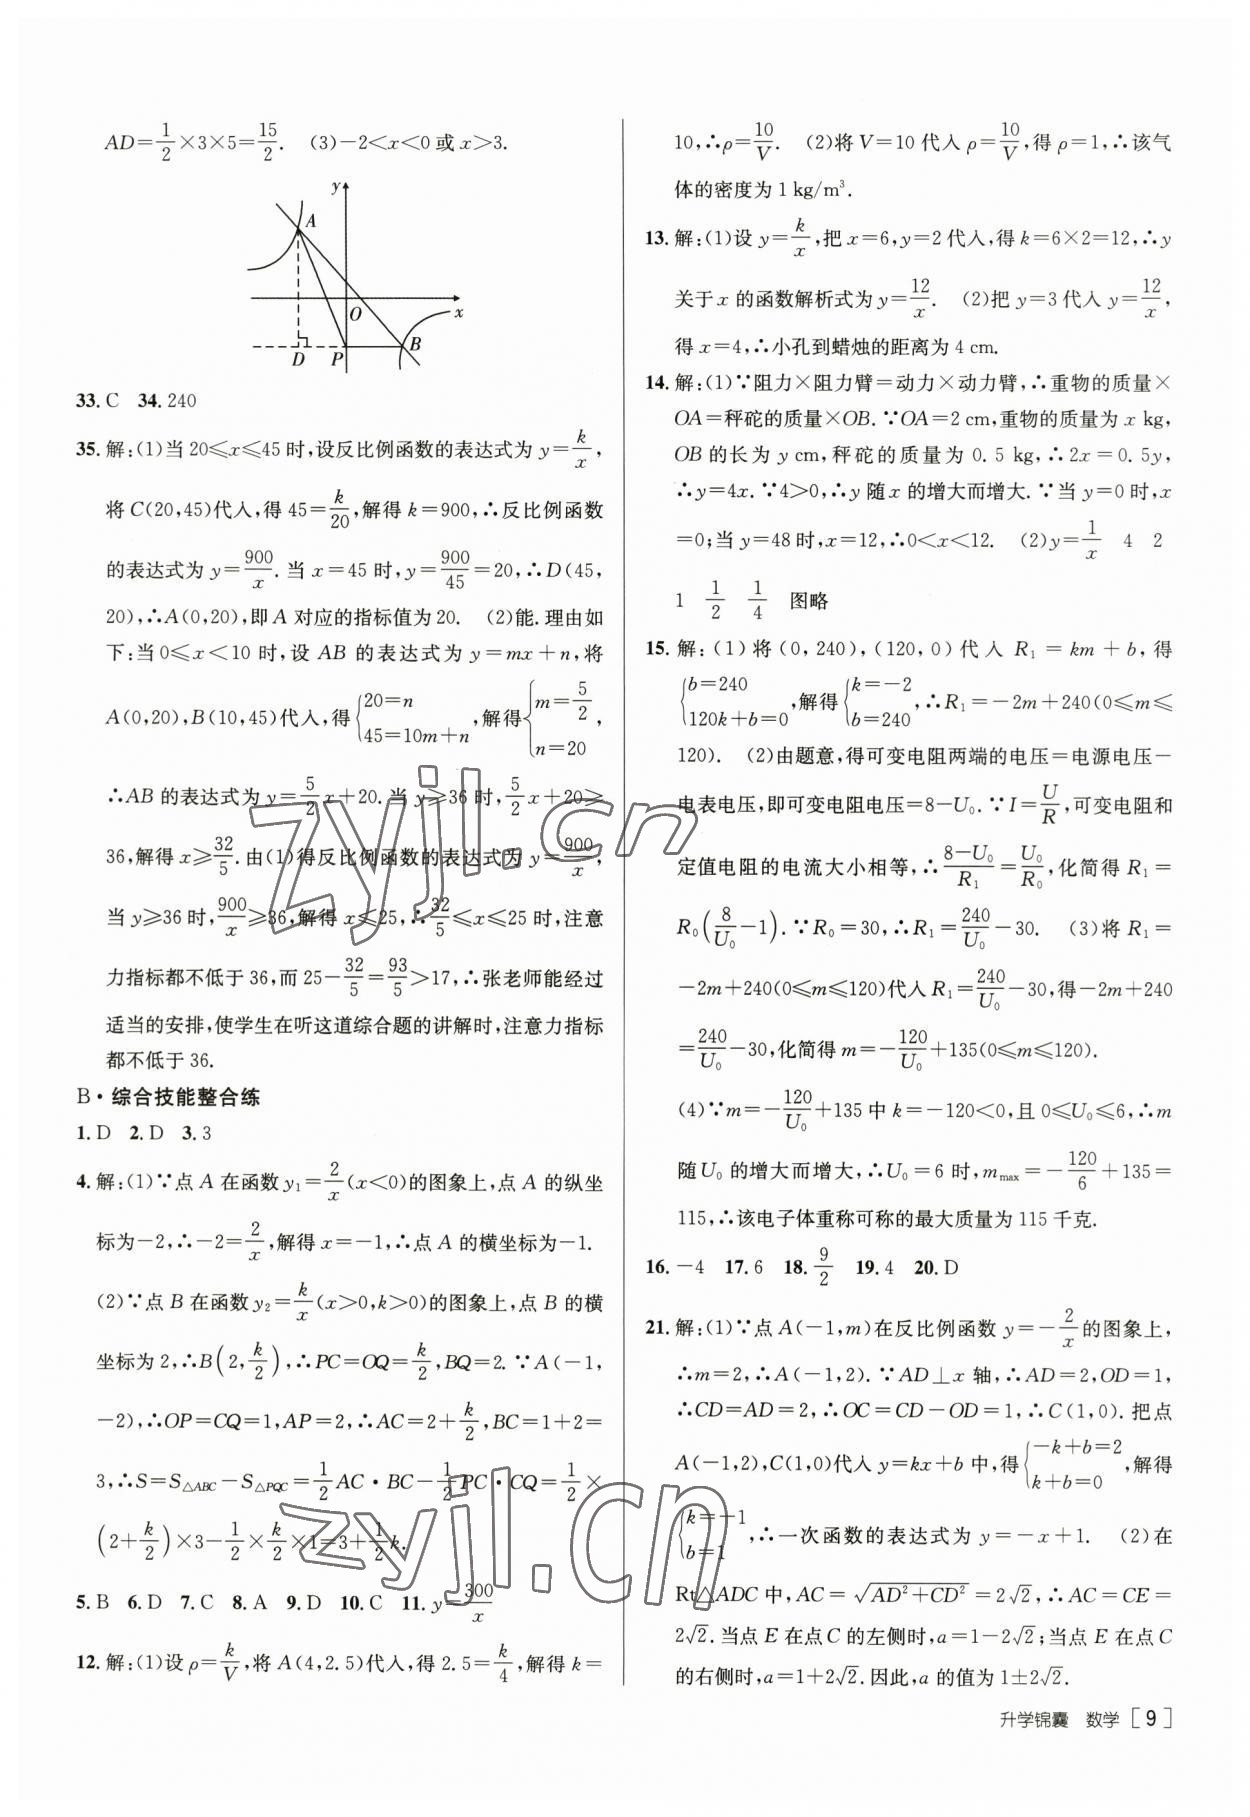 AD=1/2×3×5=15/2. (3)-2<x<0或x>3.
y
A
O
x
D
P
B
33.C 34.240
35.解:(1)当20≤x≤45时,设反比例函数的表达式为y=k/x,
将C(20,45)代入,得45=k/20,解得k=900,∴反比例函数
的表达式为y=900/x.当x=45时,y=900/45=20,∴D(45,
20),∴A(0,20),即A对应的指标值为20. (2)能.理由如
下:当0≤x<10时,设AB的表达式为y=mx+n,将
A(0,20),B(10,45)代入,得{20=n 45=10m+n,解得{m=5/2 n=20,
∴AB的表达式为y=5/2x+20.当y≥36时,5/2x+20≥
36,解得x≥32/5.由(1)得反比例函数的表达式为y=900/x,
当y≥36时,900/x≥36,解得x≤25,∴32/5≤x≤25时,注意
力指标都不低于36,而25-32/5=93/5>17,∴张老师能经过
适当的安排,使学生在听这道综合题的讲解时,注意力指标
都不低于36.
B·综合技能整合练
1.D 2.D 3.3
4.解:(1)∵点A在函数y₁=2/x(x<0)的图象上,点A的纵坐
标为-2,∴-2=2/x,解得x=-1,∴点A的横坐标为-1.
(2)∵点B在函数y₂=k/x(x>0,k>0)的图象上,点B的横
坐标为2,∴B(2,k/2),∴PC=OQ=k/2,BQ=2.∵A(-1,
-2),∴OP=CQ=1,AP=2,∴AC=2+k/2,BC=1+2=
3,∴S=S△ABC-S△PQC=1/2AC·BC-1/2PC·CQ=1/2×
(2+k/2)×3-1/2×k/2×1=3+1/2k.
5.B 6.D 7.C 8.A 9.D 10.C 11.y=300/x
12.解:(1)设ρ=k/V,将A(4,2.5)代入,得2.5=k/4,解得k=
10,∴ρ=10/V. (2)将V=10代入ρ=10/V,得ρ=1,∴该气
体的密度为1 kg/m³.
13.解:(1)设y=k/x,把x=6,y=2代入,得k=6×2=12,∴y
关于x的函数解析式为y=12/x. (2)把y=3代入y=12/x,
得x=4,∴小孔到蜡烛的距离为4 cm.
14.解:(1)∵阻力×阻力臂=动力×动力臂,∴重物的质量×
OA=秤砣的质量×OB.∵OA=2 cm,重物的质量为x kg,
OB的长为y cm,秤砣的质量为0.5 kg,∴2x=0.5y,
∴y=4x.∵4>0,∴y随x的增大而增大.∵当y=0时,x
=0;当y=48时,x=12,∴0<x<12. (2)y=1/x 4 2
1 1/2 1/4 图略
15.解:(1)将(0,240),(120,0)代入R₁=km+b,得
{b=240 120k+b=0,解得{k=-2 b=240,∴R₁=-2m+240(0≤m≤
120). (2)由题意,得可变电阻两端的电压=电源电压-
电表电压,即可变电阻电压=8-U₀.∵I=U/R,可变电阻和
定值电阻的电流大小相等,∴(8-U₀)/R₁=U₀/R₀,化简得R₁=
R₀(8/U₀-1).∵R₀=30,∴R₁=240/U₀-30. (3)将R₁=
-2m+240(0≤m≤120)代入R₁=240/U₀-30,得-2m+240
=240/U₀-30,化简得m=-120/U₀+135(0≤m≤120).
(4)∵m=-120/U₀+135中k=-120<0,且0≤U₀≤6,∴m
随U₀的增大而增大,∴U₀=6时,mmax=-120/6+135=
115,∴该电子体重称可称的最大质量为115千克.
16.-4 17.6 18.9/2 19.4 20.D
21.解:(1)∵点A(-1,m)在反比例函数y=-2/x的图象上,
∴m=2,∴A(-1,2).∵AD⊥x轴,∴AD=2,OD=1,
∴CD=AD=2,∴OC=CD-OD=1,∴C(1,0).把点
A(-1,2),C(1,0)代入y=kx+b中,得{-k+b=2 k+b=0,解得
{k=-1 b=1,∴一次函数的表达式为y=-x+1. (2)在
Rt△ADC中,AC=√(AD²+CD²)=2√2,∴AC=CE=
2√2.当点E在点C的左侧时,a=1-2√2;当点E在点C
的右侧时,a=1+2√2.因此,a的值为1±2√2.
升学锦囊 数学 [9]
zyjl.cn
zyjl.cn